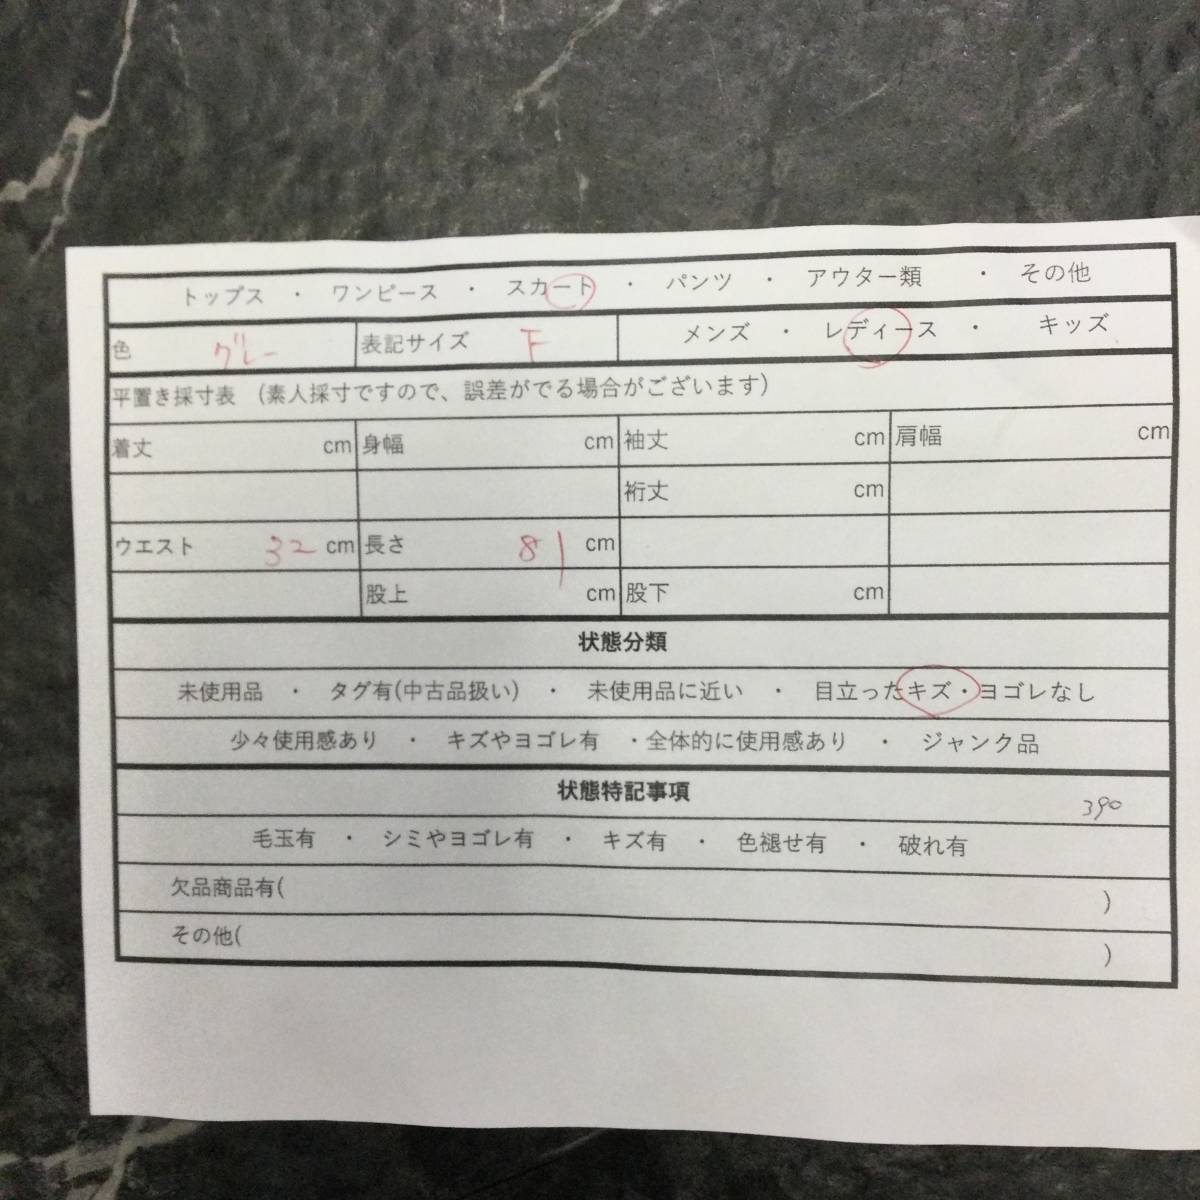 トップス ・ ワンピース ・ スカート ・ パンツ ・ アウター類 ・ その他
色 グレー 表記サイズ F メンズ ・ レディース ・ キッズ
平置き採寸表 (素人採寸ですので、誤差がでる場合がございます)
着丈 cm 身幅 cm 袖丈 cm 肩幅 cm
裄丈 cm
ウエスト 32 cm 長さ 81 cm
股上 cm 股下 cm
状態分類
未使用品 ・ タグ有(中古品扱い) ・ 未使用品に近い ・ 目立ったキズ・ヨゴレなし
少々使用感あり ・ キズやヨゴレ有 ・全体的に使用感あり ・ ジャンク品
状態特記事項 390
毛玉有 ・ シミやヨゴレ有 ・ キズ有 ・ 色褪せ有 ・ 破れ有
欠品商品有( )
その他( )